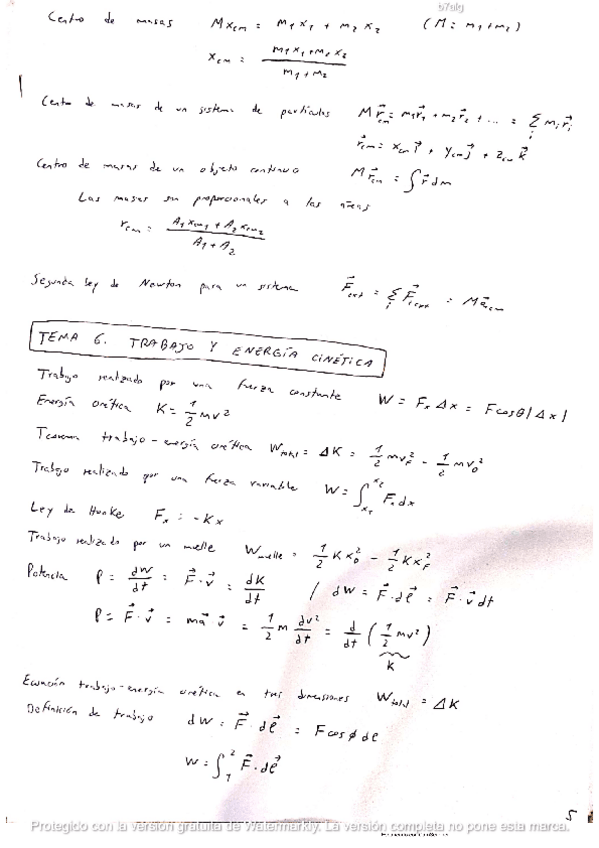 b7alg
Centro de masas M x_cm = m₁ x₁ + m₂ x₂ (M = m₁ + m₂)
x_cm = (m₁ x₁ + m₂ x₂) / (m₁ + m₂)
Centro de masas de un sistema de partículas M r⃗_cm = m₁ r⃗₁ + m₂ r⃗₂ + ... = Σ_i m_i r⃗_i
r⃗_cm = x_cm i⃗ + y_cm j⃗ + z_cm k⃗
Centro de masas de un objeto continuo M r⃗_cm = ∫ r⃗ dm
Las masas son proporcionales a las áreas
r_cm = (A₁ x_cm1 + A₂ x_cm2) / (A₁ + A₂)
Segunda ley de Newton para un sistema F⃗_ext = Σ_i F⃗_i ext = M a⃗_cm
TEMA 6. TRABAJO Y ENERGÍA CINÉTICA
Trabajo realizado por una fuerza constante W = Fₓ Δx = F cos θ |Δx|
Energía cinética K = 1/2 m v²
Teorema trabajo-energía cinética W_total = ΔK = 1/2 m v_F² - 1/2 m v₀²
Trabajo realizado por una fuerza variable W = ∫ Fₓ dx
Ley de Hooke Fₓ = -Kx
Trabajo realizado por un muelle W_muelle = 1/2 K x₀² - 1/2 K x_F²
Potencia P = dW/dt = F⃗ · v⃗ = dK/dt / dW = F⃗ · dℓ⃗ = F⃗ · v⃗ dt
P = F⃗ · v⃗ = m a⃗ v⃗ = 1/2 m dv²/dt = d/dt (1/2 m v²)
K
Ecuación trabajo-energía cinética en tres dimensiones W_total = ΔK
Definición de trabajo dW = F⃗ · dℓ⃗ = F cos ϕ dℓ
W = ∫₁² F⃗ · dℓ⃗
5
Protegido con la versión gratuita de Watermarkly. La versión completa no pone esta marca.